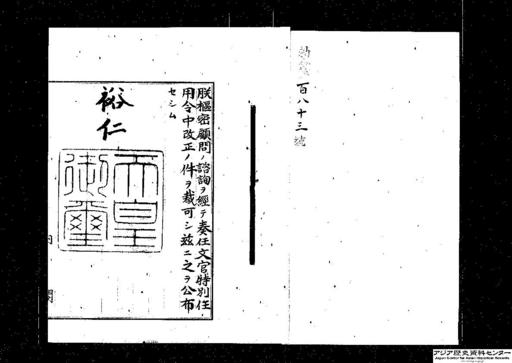 勅令百八十三號
朕樞密顧問ノ諮詢ヲ經テ奏任文官特別任
用令中改正ノ件ヲ裁可シ茲ニ之ヲ公布
セシム
裕仁
天皇
御璽
内閣
アジア歴史資料センター
Japan Center for Asian Historical Records